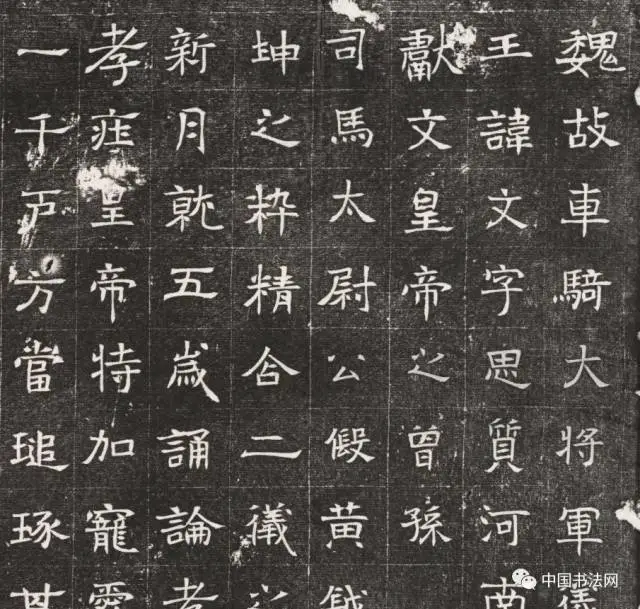 魏故車騎大將軍儀
王諱文字思質河南
獻文皇帝之曾孫
司馬太尉公假黃鉞
坤之粹精合二儀之
新月就五歲誦論孝
孝莊皇帝特加寵愛
一千戸方當琢其
中国书法网